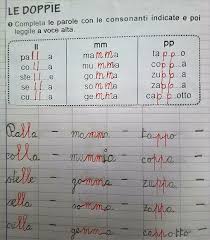 LE DOPPIE
Completa le parole con le consonanti indicate e poi
leggile a voce alta.
ll mm pp
palla mamma tappo
colla mummia coppa
stelle gomma zuppa
sella somma zappa
culla gemma cappotto
Palla - mamma - tappo -
colla - mummia - coppa -
stelle - gomma - zuppa -
sella - somma - zappa -
culla - gemma - cappotto